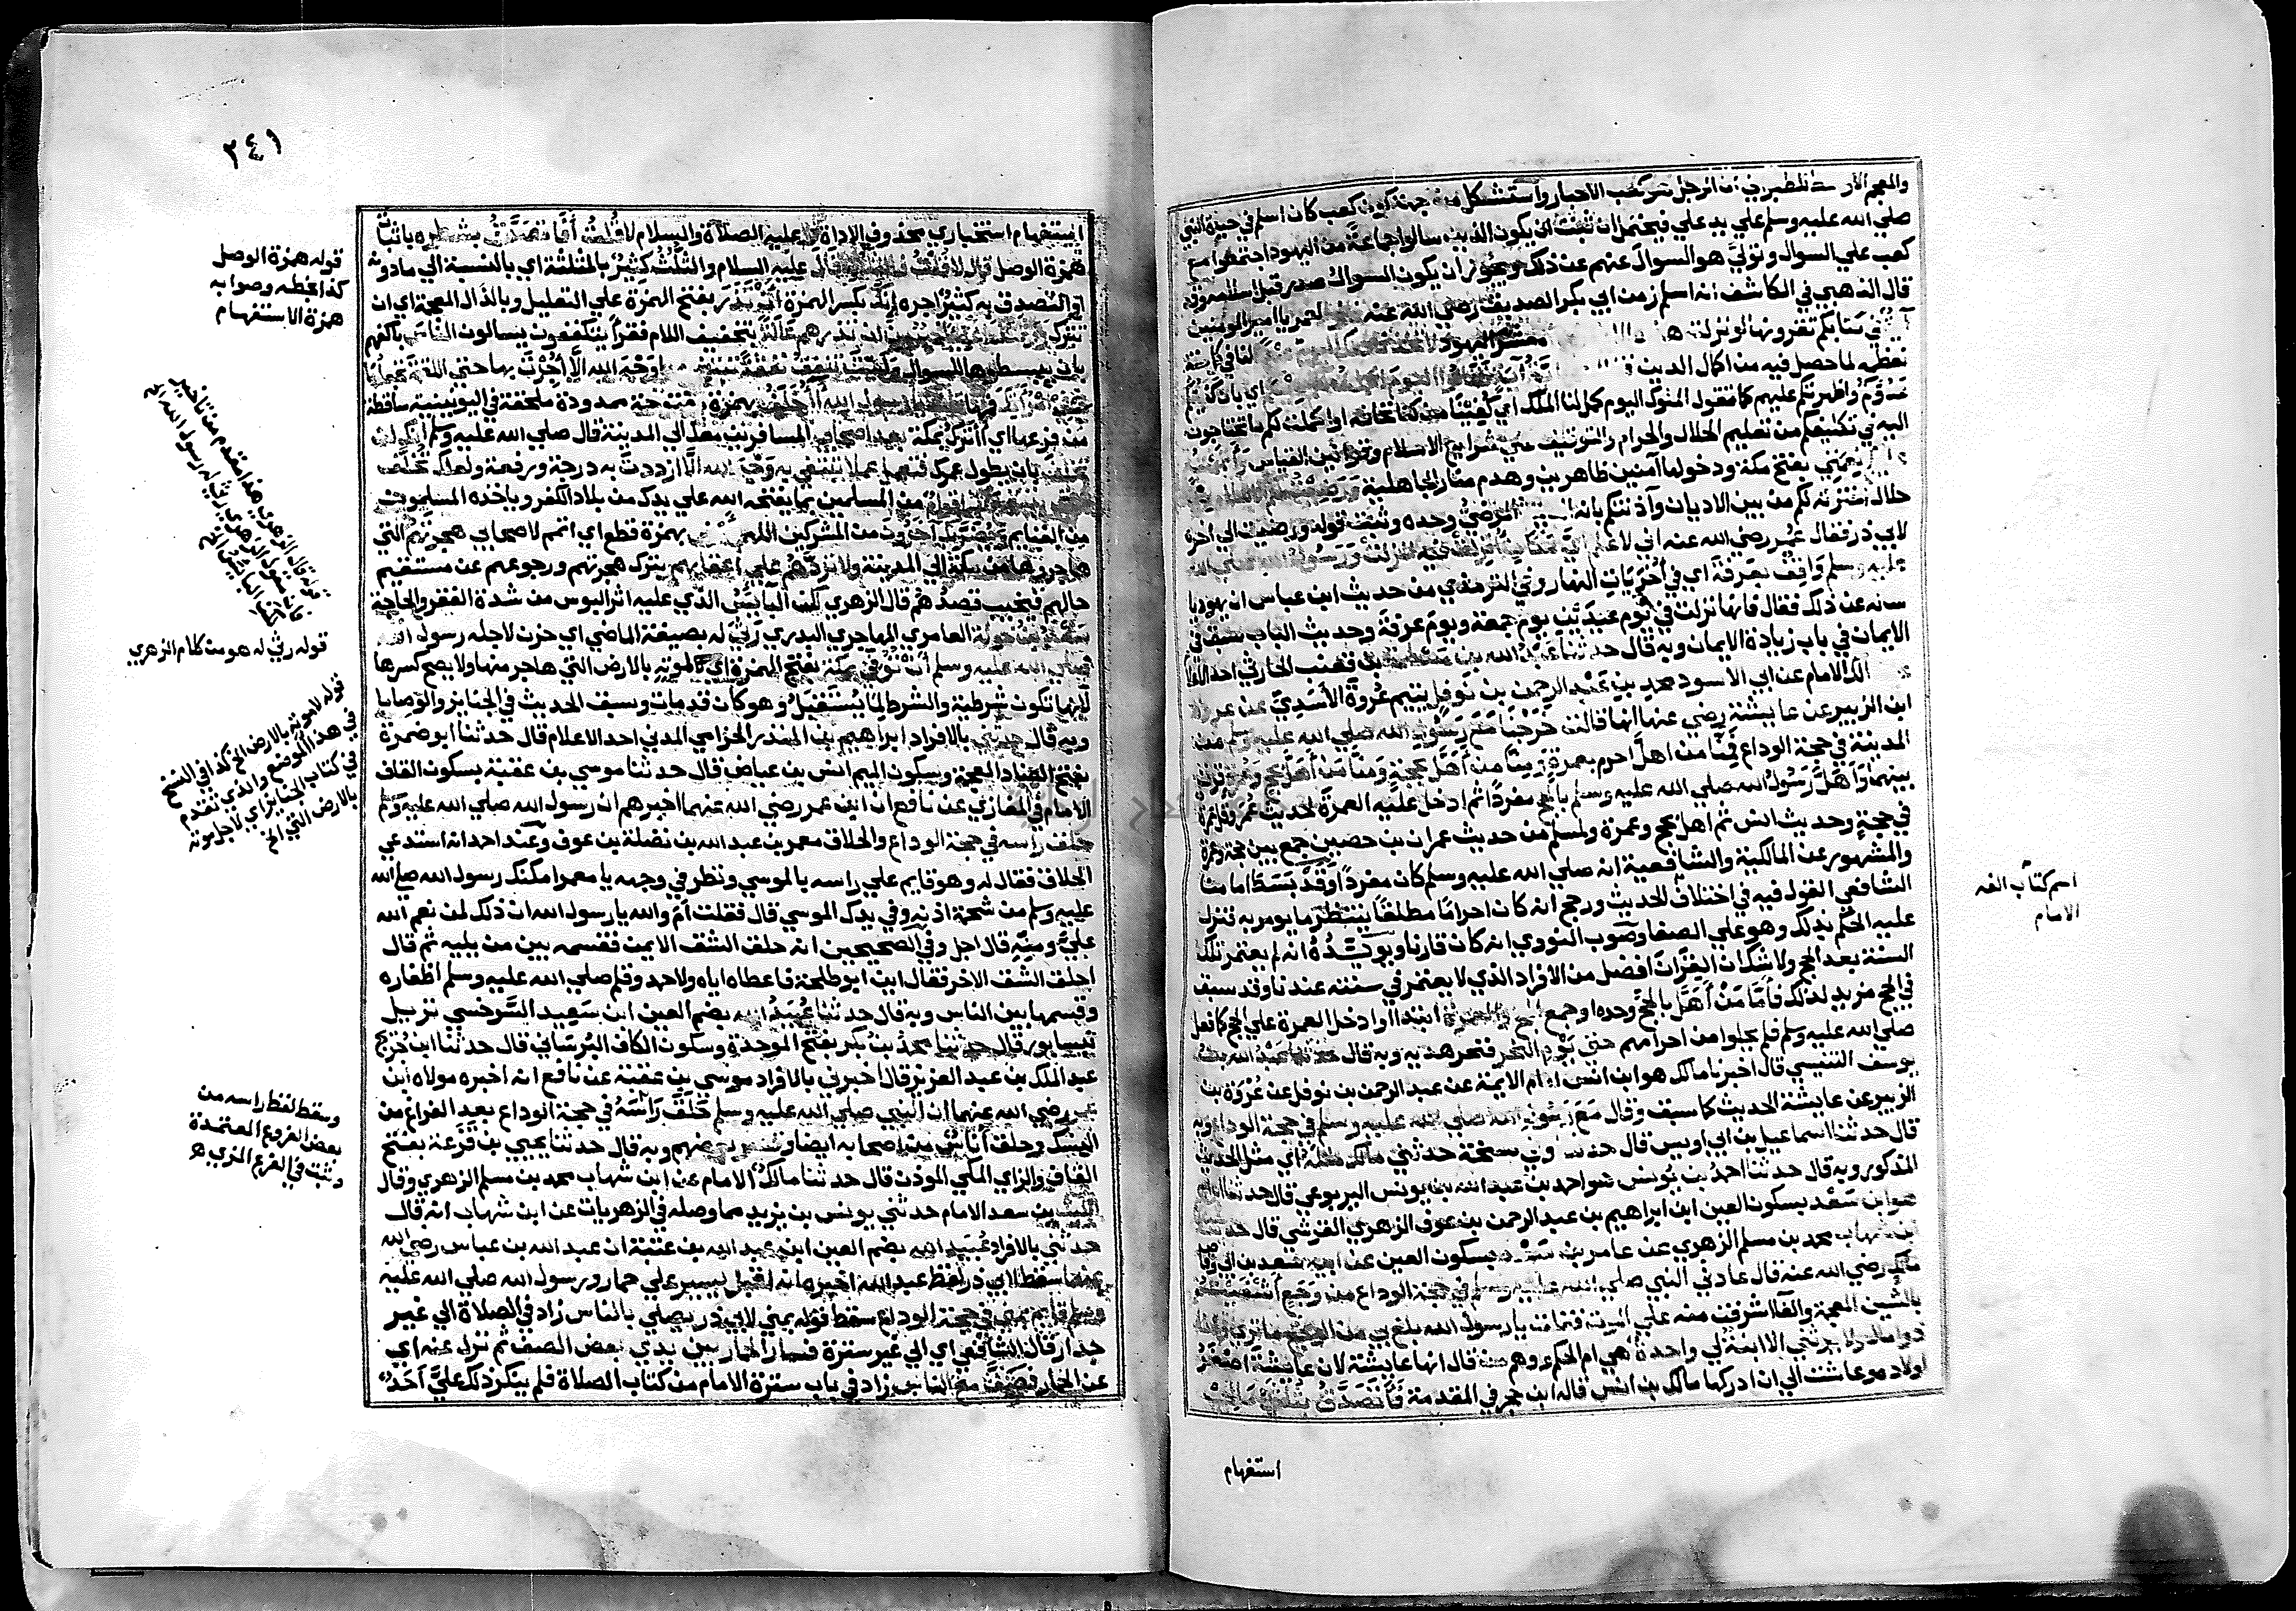 والمعجم الاوسط للطبراني ان الرجل هو كعب الاحبار واستشكل من جهة كون كعب كان اسلم في حيوة النبي
صلي الله عليه وسلم علي يد علي فيحتمل ان ثبت ان يكون الذين سالوا جماعة من اليهود اجتمعوا مع
كعب علي السوال وتولي هو السوال عنهم عن ذلك ويجوز ان يكون السوال صدر قبل اسلامه وقد
قال الذهبي في الكاشف انه اسلم زمن ابي بكر الصديق رضي الله عنه لعمر يا امير المومنين
في كتابكم تقرونها لو نزلت معشر اليهود
نعظمه لما حصل فيه من اكمال الدين
عدوكم واظهرتكم عليهم كما تقول الملوك اليوم كمل لنا الملك اي كفينا من كنا نخافه او اكملت لكم ما تحتاجون
اليه في تكليفكم من تعليم الحلال والحرام والتوقيف علي شرايع الاسلام وقوانين القياس
بفتح مكة ودخولها آمنين ظاهرين وهدم منار الجاهلية
حال اخترته لكم من بين الاديان وآذنتكم بانه المرضي وحده وثبت قوله ورضيت الي آخره
لابي ذر فقال عمر رضي الله عنه اني لاعلم اي مكان انزلت فيه انزلت ورسول الله صلي الله
عليه وسلم واقف بعرفة اي في اخريات النهار وفي الترمذي من حديث ابن عباس ان يهوديا
ساله عن ذلك فقال فانها نزلت في يوم عيدين يوم جمعة ويوم عرفة وحديث الباب سبق في
الايمان في باب زيادة الايمان وبه قال حدثنا عبد الله بن مسلمة بن قعنب الحارثي احد الاعلام
مالك الامام عن ابي الاسود محمد بن عبد الرحمن بن نوفل يتيم عروة الاسدي عن عروة
ابن الزبير عن عايشة رضي عنها انها قالت خرجنا مع رسول الله صلي الله عليه وسلم من
المدينة في حجة الوداع فمنا من اهل احرم بعمرة ومنا من اهل بحجة ومنا من اهل بحج وعمرة قرن
بينهما واهل رسول الله صلي الله عليه وسلم بالحج مفردا ثم ادخل عليه العمرة لحديث عمر وقل عمرة
في حجة وحديث انس ثم اهل بحج وعمرة ولمسلم من حديث عمران بن حصين جمع بين حجة وعمرة
والمشهور عن المالكية والشافعية انه صلي الله عليه وسلم كان مفردا وقد بسط امامنا
الشافعي القول فيه في اختلاف الحديث ورجح انه كان احراما مطلقا ينتظر ما يومر به فنزل
عليه الحكم بذلك وهو علي الصفا وصوب النووي انه كان قارنا ويويده انه لم يعتمر تلك
السنة بعد الحج ولا شك ان القران افضل من الافراد الذي لا يعتمر في سنته عندنا وقد سبق
في الحج مزيد لذلك فاما من اهل بالحج وحده او جمع الحج والعمرة ابتدا او ادخل العمرة علي الحج كما فعل
صلي الله عليه وسلم فلم يحلوا من احرامهم حتي يوم النحر فنحر هديه وبه قال حدثنا عبد الله بن
يوسف التنيسي قال اخبرنا مالك هو ابن انس امام الايمة عن عبد الرحمن بن نوفل عن عروة بن
الزبير عن عايشة الحديث كما سبق وقال مع رسول الله صلي الله عليه وسلم في حجة الوداع وبه
قال حدثنا اسماعيل بن ابي اويس قال حدثنا وفي نسخة حدثني مالك مثله اي مثل الحديث
المذكور وبه قال حدثنا احمد بن يونس هو احمد بن عبد الله بن يونس اليربوعي قال حدثنا ابراهيم
هو ابن سعد بسكون العين ابن ابراهيم بن عبد الرحمن بن عوف الزهري القرشي قال حدثنا
بن شهاب محمد بن مسلم الزهري عن عامر بن سعد بسكون العين عن ابيه سعد بن ابي وقاص
مالك رضي الله عنه قال عادني النبي صلي الله عليه وسلم في حجة الوداع من وجع اشفيت
بالشين المعجمة والفا اشرفت منه علي الموت فقلت يا رسول الله بلغ بي من الوجع ما تري وانا
ذو مال ولا يرثني الا ابنة لي واحدة هي ام الحكم ووهم من قال انها عايشة لان عايشة اصغر
اولاده وعاشت الي ان ادركها مالك بن انس قاله ابن حجر في المقدمة فاتصدق بثلثي مالي
استفهام
اسم كتاب الفه
الامام
٣٤١
استفهام استخباري محذوف الاداة قال عليه الصلاة والسلام لا قلت افاتصدق بشطره باثبات
همزة الوصل قال لا قلت فالثلث قال عليه السلام والثلث كثير بالمثلثة اي بالنسبة الي ما دونه
او التصدق به كثير اجره انك بكسر الهمزة ان تذر بفتح الهمزة علي التعليل وبالذال المعجمة اي ان
تترك ورثتك اغنياء خير من ان تذرهم عالة بتخفيف اللام فقراء يتكففون يسالون الناس باكفهم
بان يبسطوها للسوال ولست تنفق نفقة تبتغي بها وجه الله الا اجرت بها حتي اللقمة تجعلها
في في امراتك قلت يا رسول الله ااخلف بهمزة مفتوحة ممدودة ملحقة في اليونينية ساقطة
من فرعها اي ااترك بمكة بعد اصحابي المسافرين معك الي المدينة قال صلي الله عليه وسلم انك لن
تخلف بان يطول عمرك فتعمل عملا تبتغي به وجه الله الا ازددت به درجة ورفعة ولعلك تخلف
حتي ينتفع بك اقوام من المسلمين بما يفتحه الله علي يدك من بلاد الكفر وياخذه المسلمون
من الغنايم ويضر بك آخرون من المشركين اللهم امض بهمزة قطع اي اتمم لاصحابي هجرتهم التي
هاجروها من مكة الي المدينة ولا تردهم علي اعقابهم بترك هجرتهم ورجوعهم عن مستقيم
حالهم فيخيب قصدهم قال الزهري لكن البايس الذي عليه اثر البوس من شدة الفقر والحاجة
سعد بن خولة العامري المهاجري البدري رثي له بصيغة الماضي اي حزن لاجله رسول الله
صلي الله عليه وسلم ان توفي بمكة بفتح الهمزة اي لموته بالارض التي هاجر منها ولا يصح كسرها
لانها تكون شرطية والشرط لما يستقبل وهو كان قد مات وسبق الحديث في الجنايز والوصايا
وبه قال حدثني بالافراد ابراهيم بن المنذر الحزامي المدني احد الاعلام قال حدثنا ابو ضمرة
بفتح الضاد المعجمة وسكون الميم انس بن عياض قال حدثنا موسي بن عقبة بسكون القاف
الامام في المغازي عن نافع ان ابن عمر رضي الله عنهما اخبرهم ان رسول الله صلي الله عليه وسلم
حلق راسه في حجة الوداع والحلاق معمر بن عبد الله بن نضلة بن عوف وعند احمد انه استدعي
الحلاق فقال له وهو قايم علي راسه بالموسي ونظر في وجهه يا معمر امكنك رسول الله صلي الله
عليه وسلم من شحمة اذنه وفي يدك الموسي قال فقلت اما والله يا رسول الله ان ذلك لمن نعم الله
علي ومنه قال اجل وفي الصحيحين انه حلق الشق الايمن فقسمه بين من يليه ثم قال
احلق الشق الاخر فقال اين ابو طلحة فاعطاه اياه ولاحمد وقلم صلي الله عليه وسلم اظفاره
وقسمها بين الناس وبه قال حدثنا عبيد الله بضم العين ابن سعيد السرخسي نزيل
نيسابور قال حدثنا محمد بن بكر بفتح الموحدة وسكون الكاف البرساني قال حدثنا ابن جريج
عبد الملك بن عبد العزيز قال اخبرني بالافراد موسي بن عقبة عن نافع انه اخبره مولاه ابن
عمر رضي الله عنهما ان النبي صلي الله عليه وسلم حلق راسه في حجة الوداع بعد الفراغ من
النسك وحلق اناس من اصحابه ايضا وقصر بعضهم وبه قال حدثنا يحيي بن قزعة بفتح
القاف والزاي المكي الموذن قال حدثنا مالك الامام عن ابن شهاب محمد بن مسلم الزهري وقال
الليث بن سعد الامام حدثني يونس بن يزيد مما وصله في الزهريات عن ابن شهاب انه قال
حدثني بالافراد عبيد الله بضم العين ابن عبد الله بن عتبة ان عبد الله بن عباس رضي الله
عنهما سقط لابي ذر لفظ عبد الله اخبره انه اقبل يسير علي حمار ورسول الله صلي الله عليه
وسلم قايم بمني في حجة الوداع سقط قوله بمني لابي ذر يصلي بالناس زاد في الصلاة الي غير
جدار قال الشافعي اي الي غير سترة فسار الحمار بين يدي بعض الصف ثم نزل عنه اي
عن الحمار فصف مع الناس زاد في باب سترة الامام من كتاب الصلاة فلم ينكر ذلك علي احد
قوله همزة الوصل
كذا بخطه وصوابه
همزة الاستفهام
قوله رثي له هو من كلام الزهري
قوله لموته بالارض الخ كذا في النسخ
في هذا الموضع والذي تقدم
في كتاب الجنايز اي لاجل موته
بالارض التي الخ
وسقط لفظ راسه من
بعض الفروع المعتمدة
وثبت في الفرع المزي ه